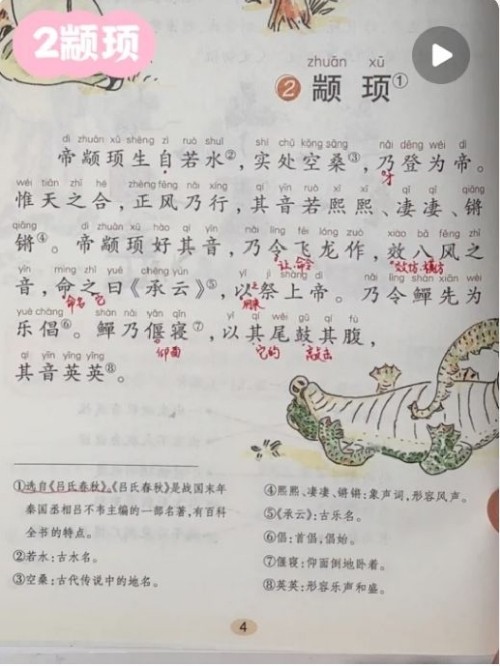 2颛顼
zhuān xū
2 颛 顼①
dì zhuān xū shēng zì ruò shuǐ shí chǔ kōng sāng nǎi dēng wéi dì
帝颛顼生自若水②,实处空桑③,乃登为帝。
才
wéi tiān zhī hé zhèng fēng nǎi xíng qí yīn ruò xī xī qī qī qiāng
惟天之合,正风乃行,其音若熙熙、凄凄、锵
qiāng dì zhuān xū hào qí yīn nǎi lìng fēi lóng zuò xiào bā fēng zhī
锵④。帝颛顼好其音,乃令飞龙作,效八风之
让,命令 效仿,模仿
yīn mìng zhī yuē chéng yún yǐ jì shàng dì nǎi lìng shàn xiān wéi
音,命之曰《承云》⑤,以祭上帝。乃令鱓先为
命名 它 用来
yuè chàng shàn nǎi yǎn qǐn yǐ qí wěi gǔ qí fù
乐倡⑥。鱓乃偃寝⑦,以其尾鼓其腹,
仰面 它的 敲击
qí yīn yīng yīng
其音英英⑧。
①选自《吕氏春秋》。《吕氏春秋》是战国末年
秦国丞相吕不韦主编的一部名著,有百科
全书的特点。
②若水:古水名。
③空桑:古代传说中的地名。
④熙熙、凄凄、锵锵:象声词,形容风声。
⑤《承云》:古乐名。
⑥倡:首倡,倡始。
⑦偃寝:仰面倒地卧着。
⑧英英:形容乐声和盛。
4